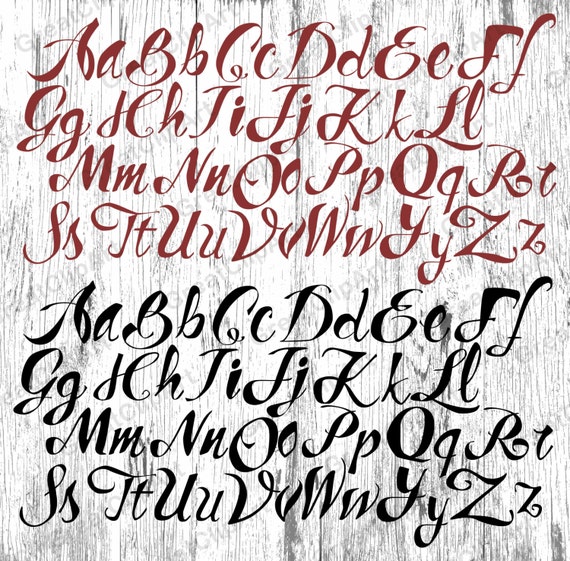 Aa Bb Cc Dd Ee Ff
Gg Hh Ii Jj Kk Ll
Mm Nn Oo Pp Qq Rr
Ss Tt Uu Vv Ww Yy Zz
Aa Bb Cc Dd Ee Ff
Gg Hh Ii Jj Kk Ll
Mm Nn Oo Pp Qq Rr
Ss Tt Uu Vv Ww Yy Zz